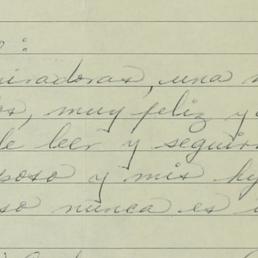 o:
iradoras, una n
os, muy feliz y
de leer y seguir
poso y mis hij
so nunca es